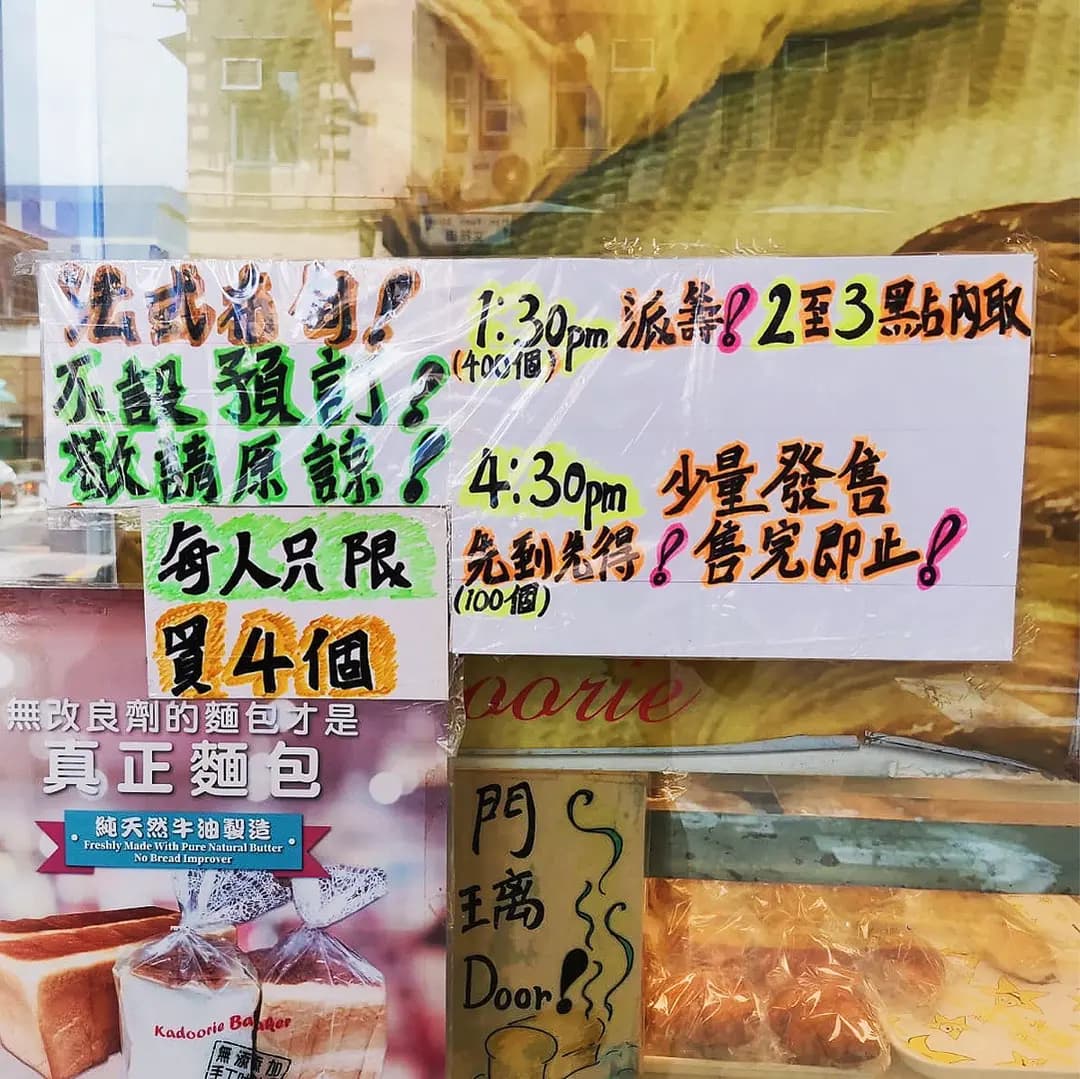 法式柏甸!
不設預訂!
敬請原諒!
1:30pm 派籌! 2至3點內取
(400個)
4:30pm 少量發售
先到先得! 售完即止!
(100個)
每人只限
買4個
oorie
無改良劑的麵包才是
真正麵包
純天然牛油製造
Freshly Made With Pure Natural Butter
No Bread Improver
Kadoorie Ba ker
無添加
門
璃
Door!